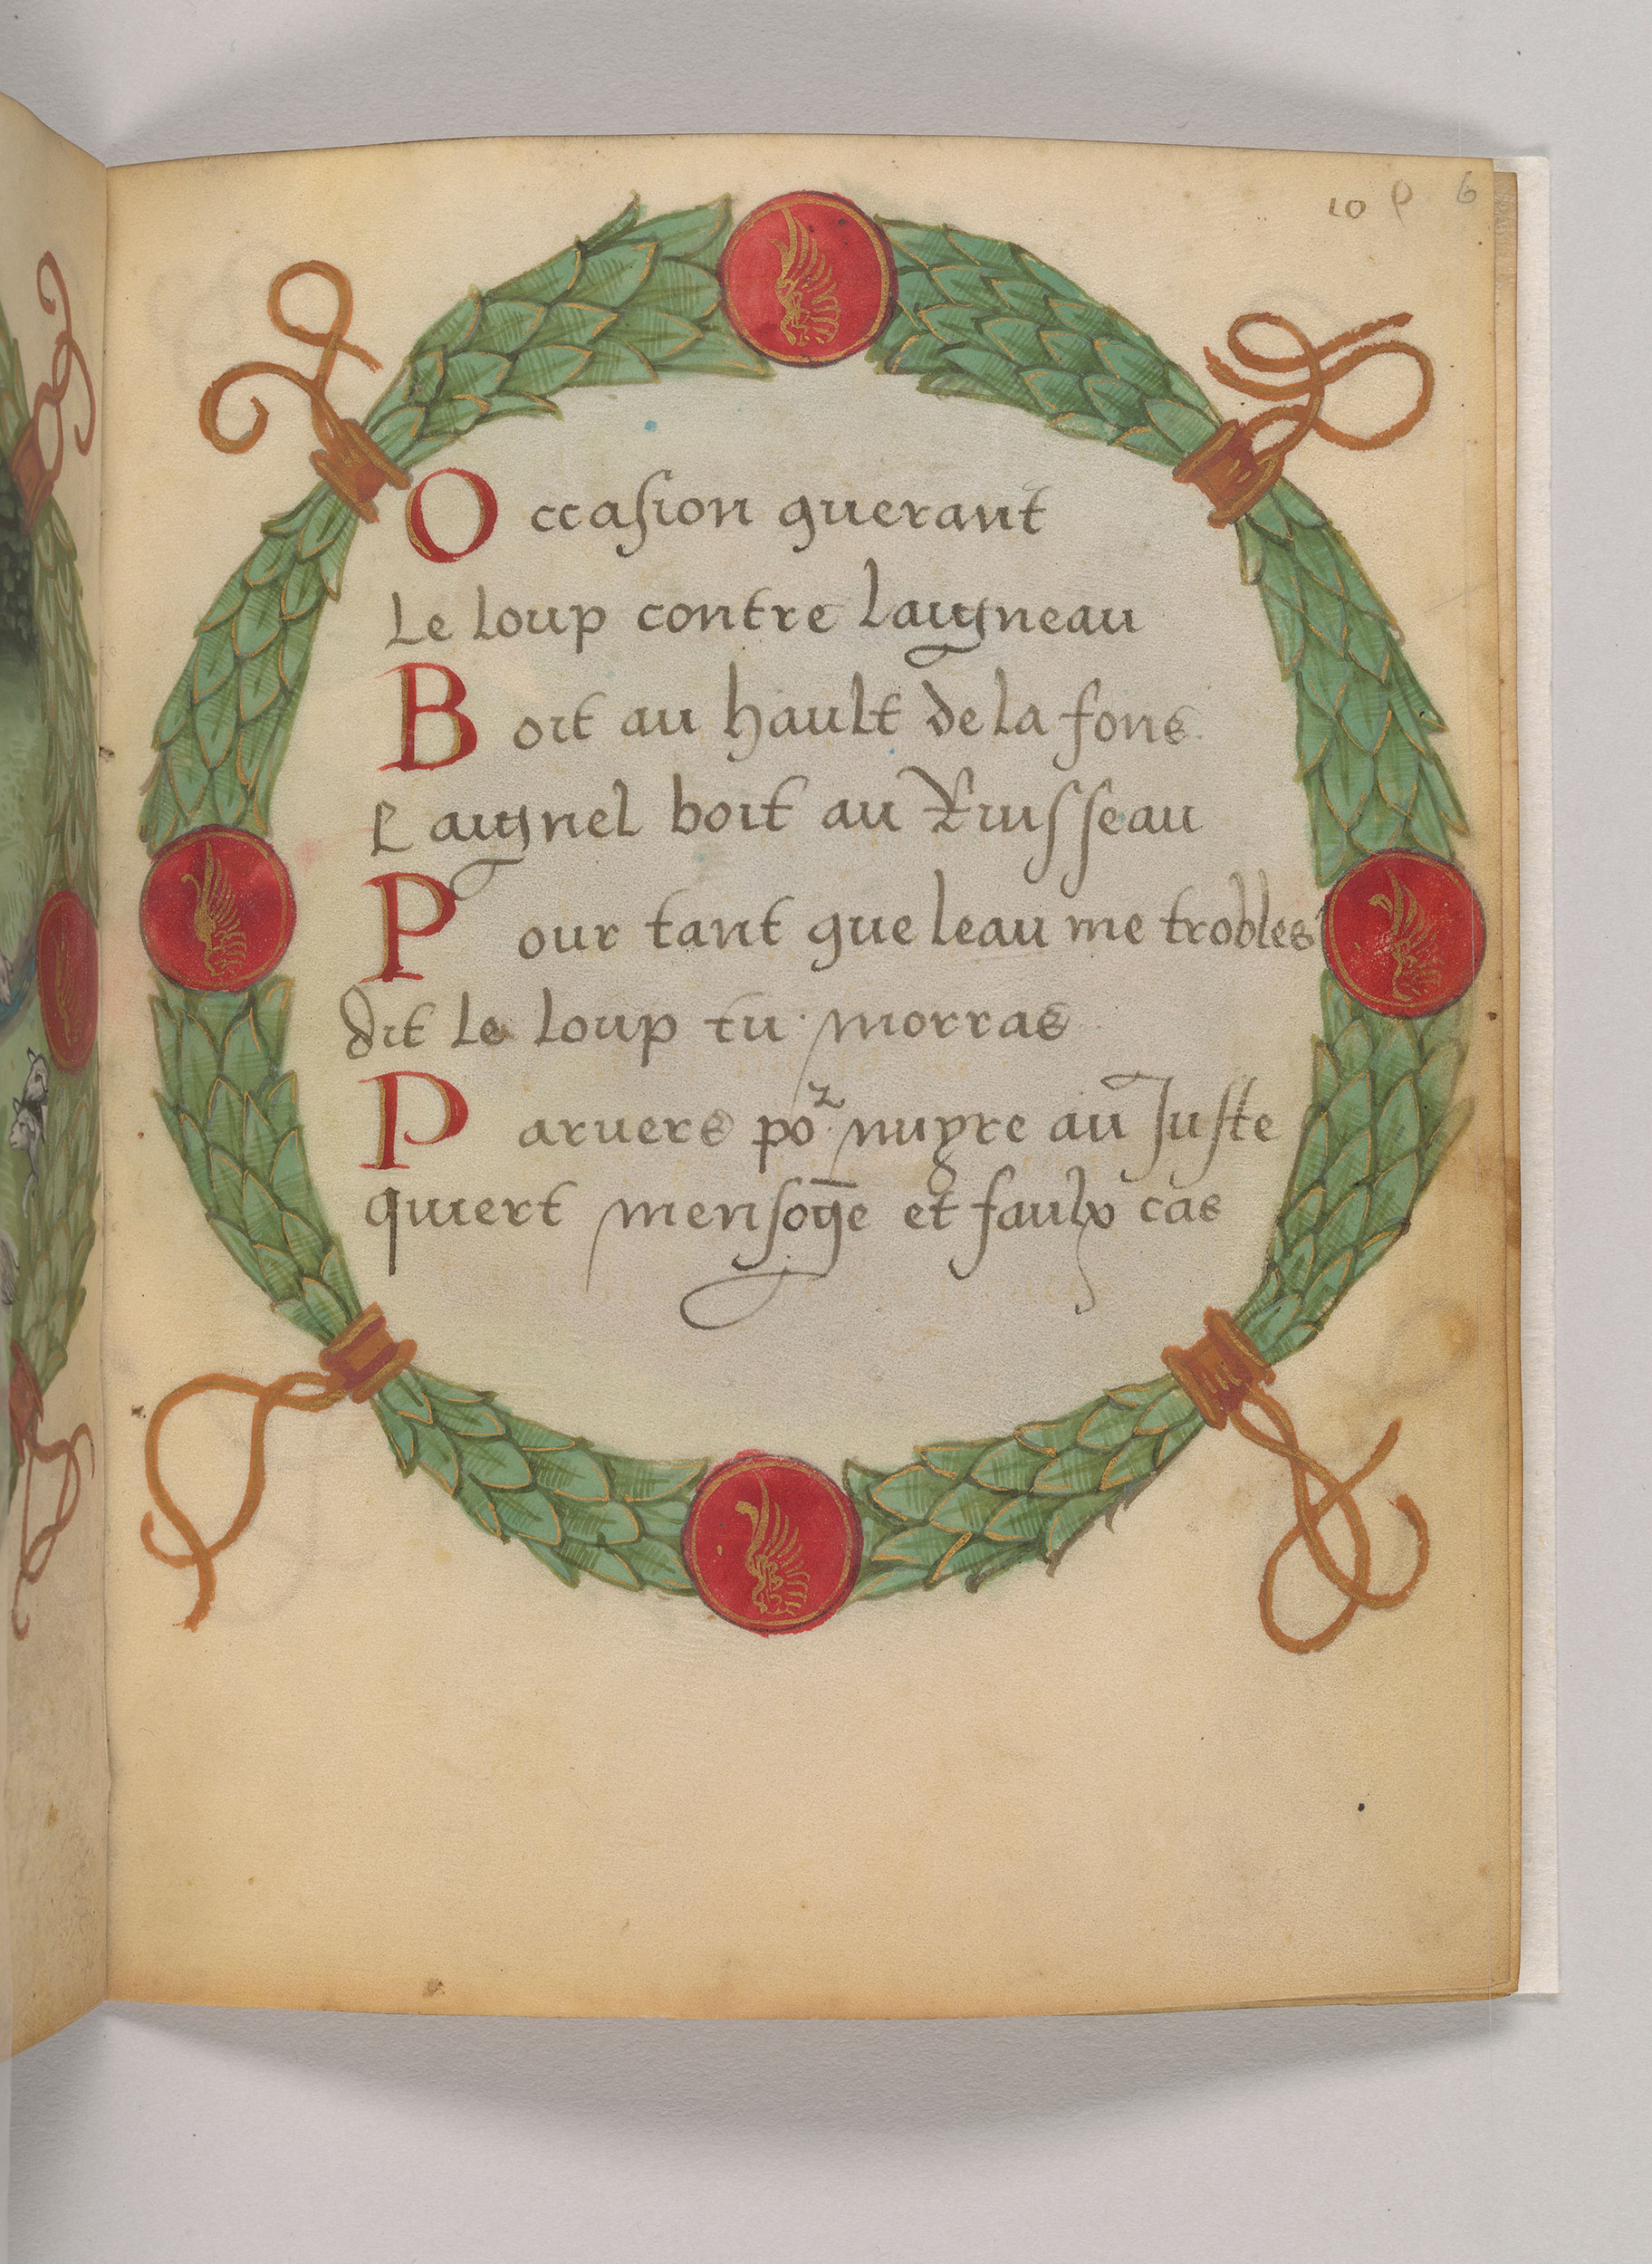 10 6
Occasion querant
Le loup contre laigneau
Boit au hault de la fons
Laignel boit au Ruisseau
Pour tant que leau me trobles
dit le loup tu morras
Parvers poᷣ nuyre au Juste
quiert mensoḡe et faulx cas